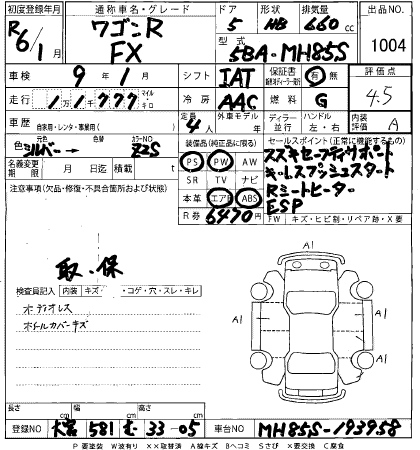 初度登録年月 通称車名・グレード ドア 形状 排気量 出品No.
R6/1月 ワゴンR FX 5 HB 660cc 1004
型式 5BA-MH85S
車検 9年1月 シフト IAT 保証書 有 無 評価点 4.5
走行 1万1千777 マイル キロ 冷房 AAC 燃料 G
車歴 自家用・レンタ・事業用( ) 定員 4人 外車モデル 年 ディーラー 並行 ハンドル 左・右 内装評価 A
色 シルバー→ カラーNO Z2S 装備品(純正品に限る) セールスポイント(正常に機能するもの)
名義変更期限 月 日迄 積載 t PS PW AW スズキセーフティサポート
注意事項(欠品・修復・不具合箇所および状態) SR TV ナビ キーレスプッシュスタート
本革 エアB ABS Rシートヒーター
R券 6470円 ESP
FW キズ・ヒビ割・リペア跡・X要
取・保
検査員記入 内装 キズ ・コゲ・穴・スレ・キレ
オーディオレス
ホイルカバーキズ
A1
A1 A1
A1
長さ cm 幅 cm 高さ cm
登録NO 大宮 581 む 33-05 車台NO MH85S-193958
P要塗装 W波有り ××取替済 A線キズ Bヘコミ Sさび ×要交換 C腐食